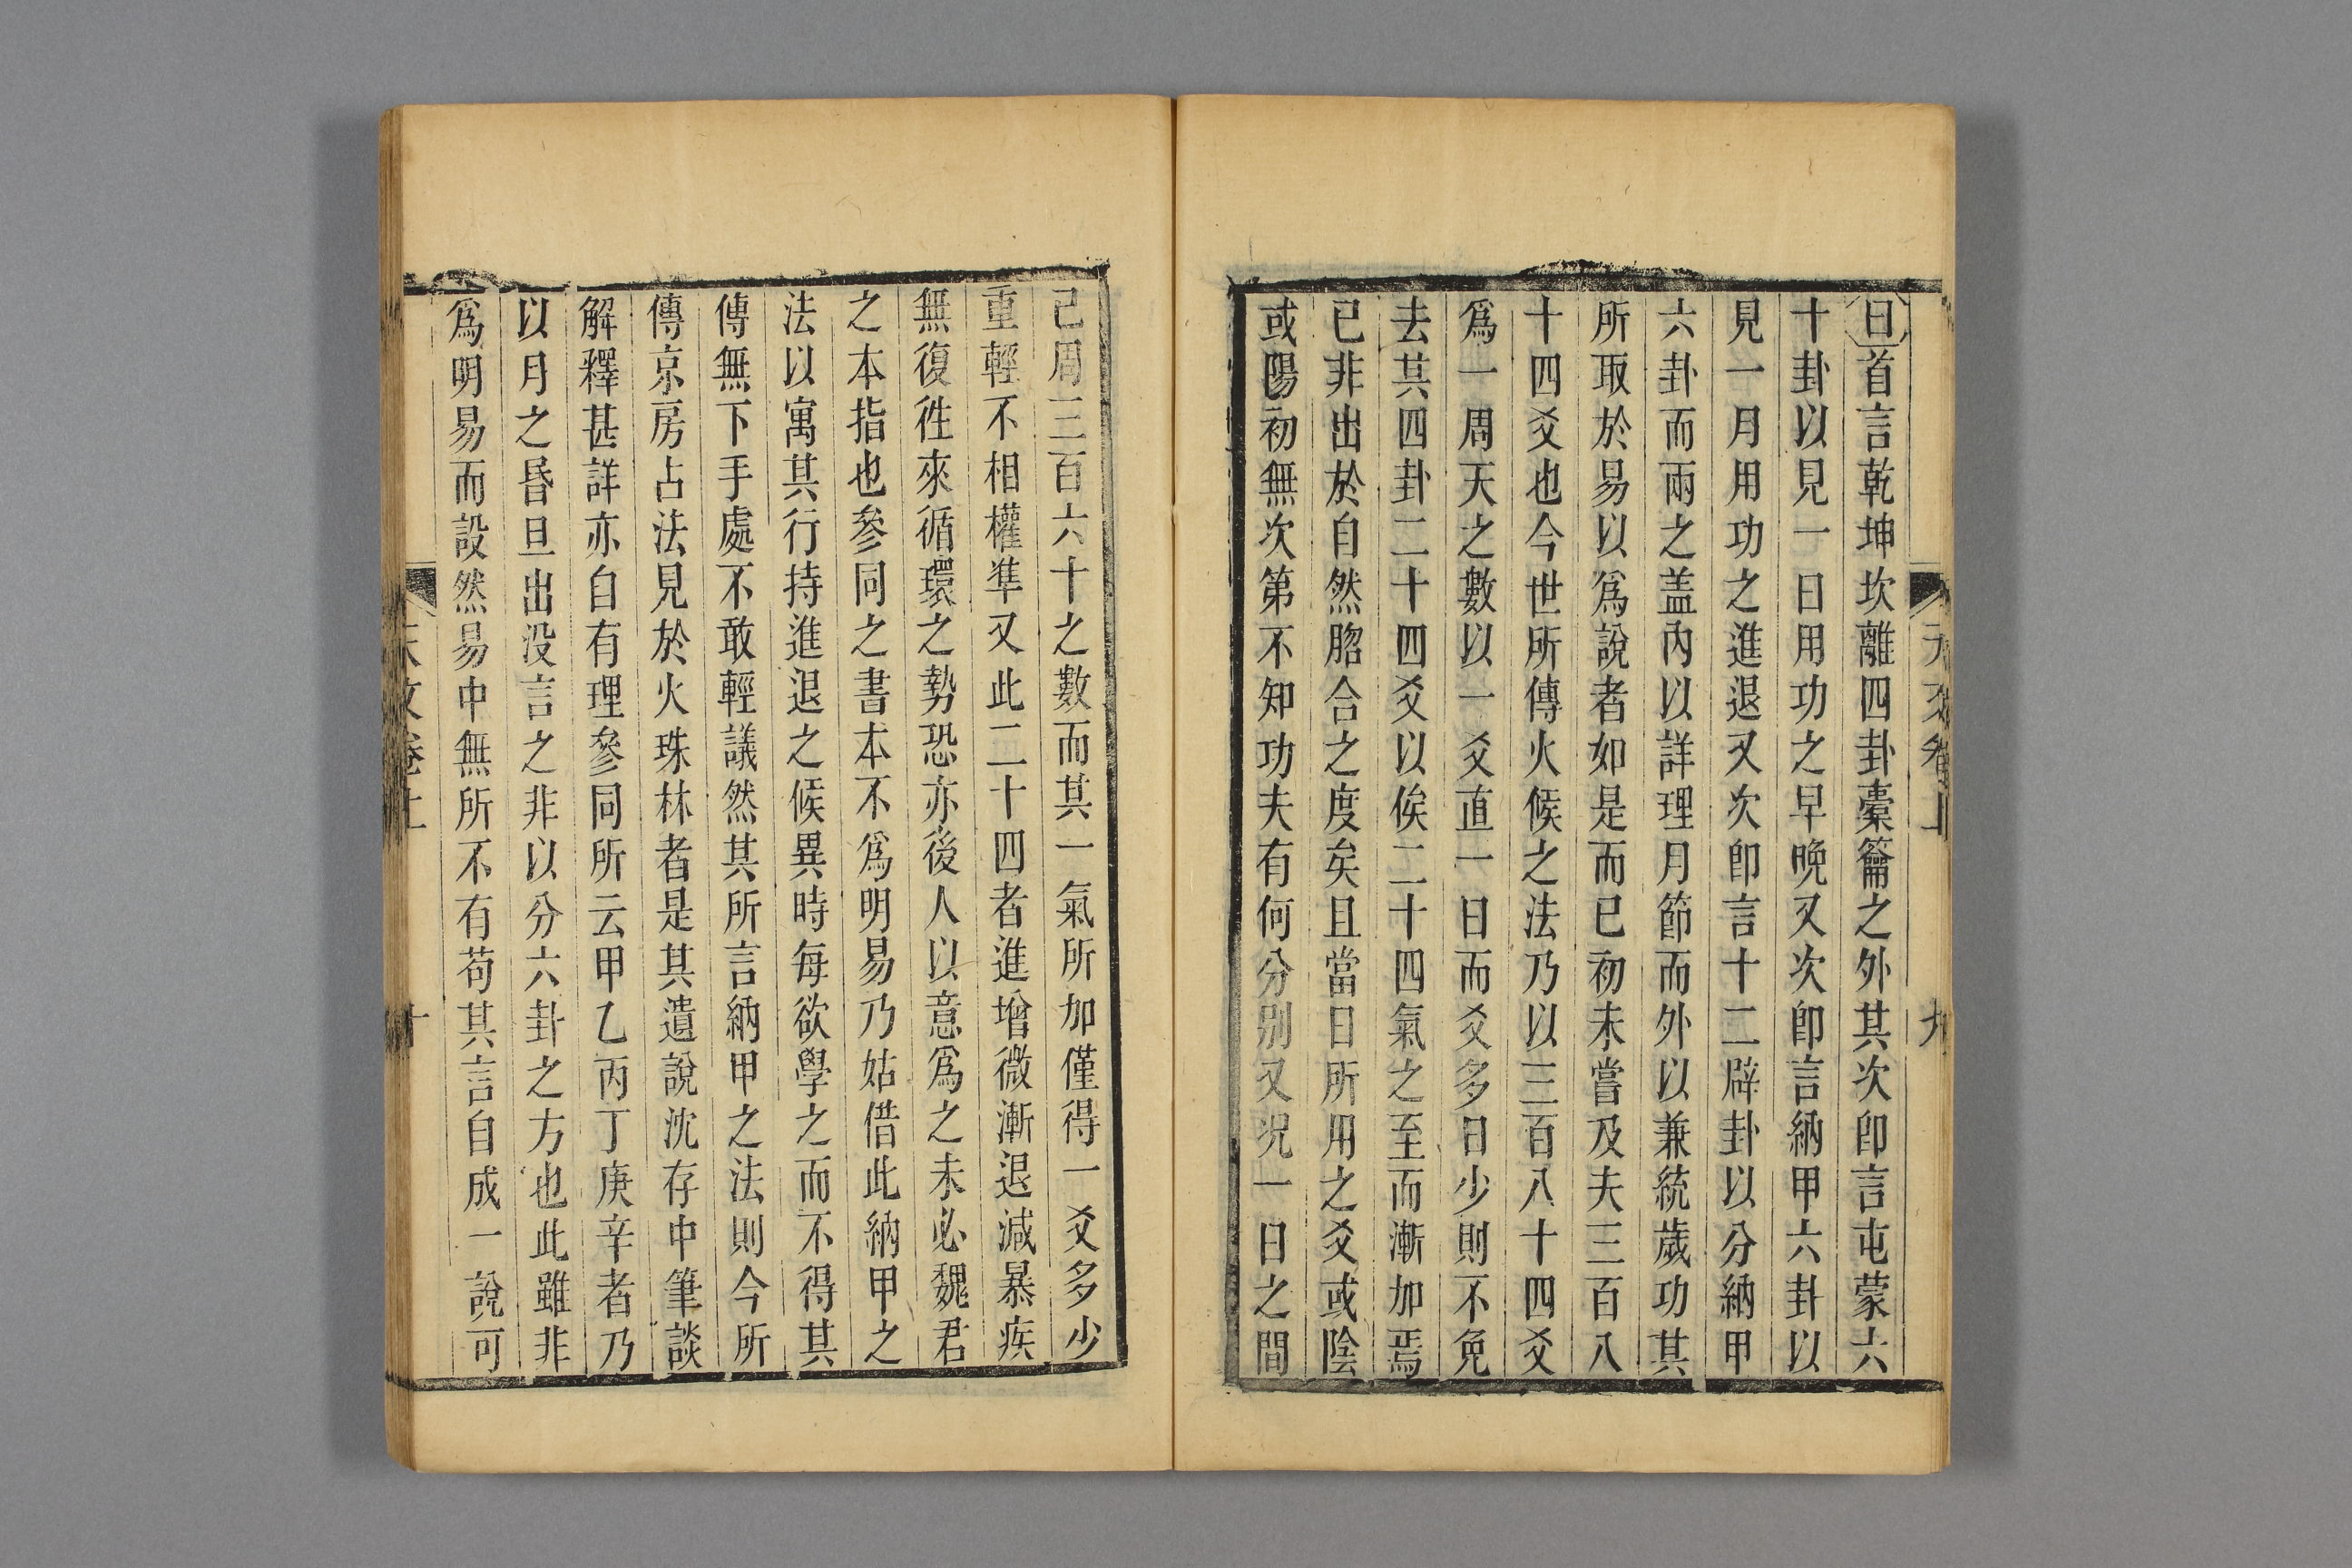 曰首言乾坤坎離四卦橐籥之外其次卽言屯蒙六
十卦以見一日用功之早晚又次卽言納甲六卦以
見一月用功之進退又次卽言十二辟卦以分納甲
六卦而兩之盖內以詳理月節而外以兼統歲功其
所取於易以爲說者如是而已初未嘗及夫三百八
十四爻也今世所傳火候之法乃以三百八十四爻
爲一周天之數以一爻直一日而爻多日少則不免
去其四卦二十四爻以俟二十四氣之至而漸加焉
已非出於自然脗合之度矣且當日所用之爻或陰
或陽初無次第不知功夫有何分別又況一日之間
已周三百六十之數而其一氣所加僅得一爻多少
重輕不相權準又此二十四者進增微漸退減暴疾
無復徃來循環之勢恐亦後人以意爲之未必魏君
之本指也參同之書本不爲明易乃姑借此納甲之
法以寓其行持進退之候異時每欲學之而不得其
傳無下手處不敢輕議然其所言納甲之法則今所
傳京房占法見於火珠林者是其遺說沈存中筆談
解釋甚詳亦自有理參同所云甲乙丙丁庚辛者乃
以月之昏旦出没言之非以分六卦之方也此雖非
爲明易而設然易中無所不有苟其言自成一說可